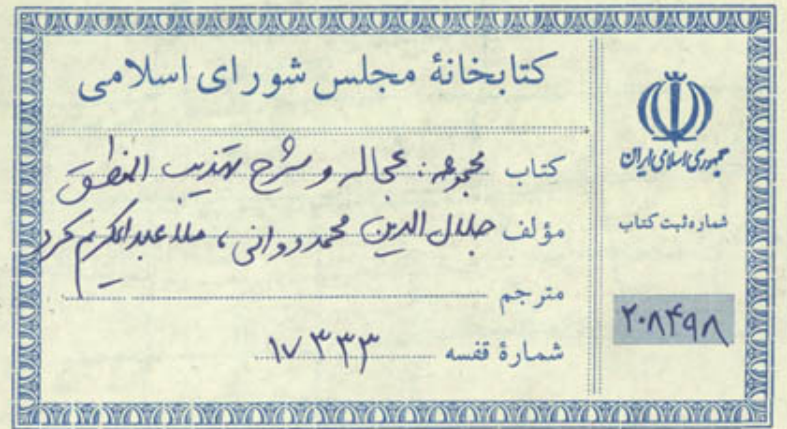 کتابخانهٔ مجلس شورای اسلامی
کتاب مجموعه: عجاله و شرح تهذیب المنطق
مؤلف جلال الدین محمد دوانی، ملا عبدالکریم کرد
مترجم
شمارهٔ قفسه ۱۷۳۳۳
جمهوری اسلامی ایران
شماره ثبت کتاب
۲۰۸۴۹۸